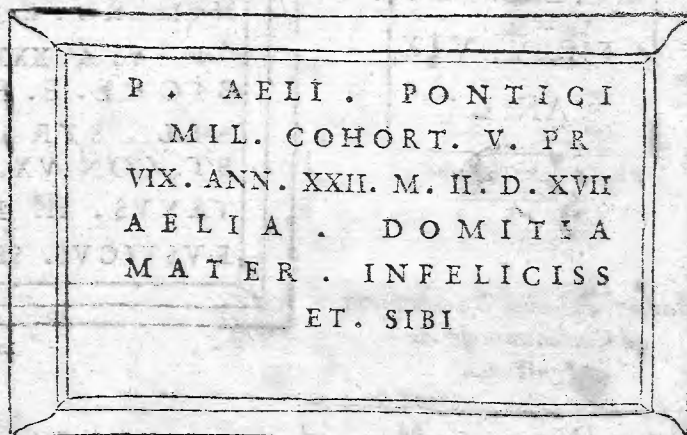 P. AELI. PONTICI
MIL. COHORT. V. PR
VIX. ANN. XXII. M. II. D. XVII
AELIA. DOMITIA
MATER. INFELICISS
ET. SIBI